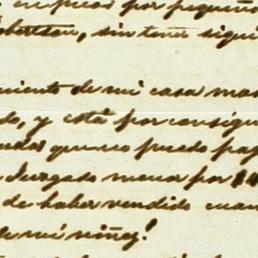 en pesos por pequeño
Robertson, sin tener siqui
miento de mi casa mas
do, y está por consigu
que no puedo pag
Juzgado menor por
de haber vendido cuan
de mi niñez!